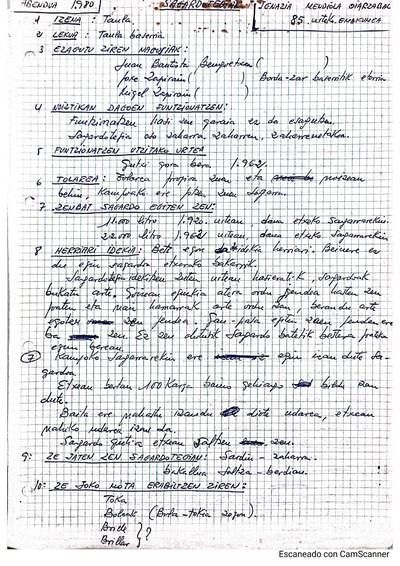 ABENDUA 1980 SAGARDOTEGIAK JENARIA MENDIOLA OIARZABAL
85 urteko EMAKUMEA
1 IZENA: Tanla
2 LEKUA: Tanla baserria
3 EZAGUTU ZIREN NAGUSIAK:
Juan Bautista ( )
Jose Zapirain ( ) Borda-zar baserritik etorria
Migel Zapirain ( )
4 NOIZTIKAN DAGOEN FUNTZIONATZEN:
Funtzionatzen hasi zen garaia ez da ezagutzen.
Sagardotegia oso zaharra, zaharren, zaharrenetakoa.
5 FUNTZIONATZEN UTZITAKO URTEA
Gutxi gora bera 1.962.
6 TOLAREA: Tolarea propioa zuen eta noizean
behin, kanpoko ere jotzen zuen sagarra.
7 ZENBAT SAGARDO EGITEN ZEN:
11.000 litro 1.920. urtean, dana etxeko sagarrarekin
22.000 litro 1.962 urtean, dana etxeko sagarrarekin
8 HERRIARI IDEKIA: Beti egon da idekia herriari. Beinere ez
du egin sagardo etxerako bakarrik.
Sagardotegia idekitzen zuten urtean hasieratik, sagardoak
bukatu arte. Goizean
paten eta gau hamarrak arte ordu zan, berandu arte
egoten zen jendea.
ba zen. Ez zen dututik sagardo batetik bestera
egun berean.
7 Kanpoko sagarrarekin ere egin izan dute sa-
gardoa.
Etxean bertan 100 karga baino gehiago bildu izan
dute.
Baita ere nahastu izandu dute udarea, etxean
nahiko udarea izan da.
Sagardo gutxi etxean saltzen zen.
9: ZE JATEN ZEN SAGARDOTEGIAN: Sardin-zaharra.
bakallua saltsa-berdian.
10: ZE JOKO MOTA ERABILTZEN ZIREN:
Toka
Bolank (Bola-tokia zegon).
Bride
Brillar } ?
Escaneado con CamScanner